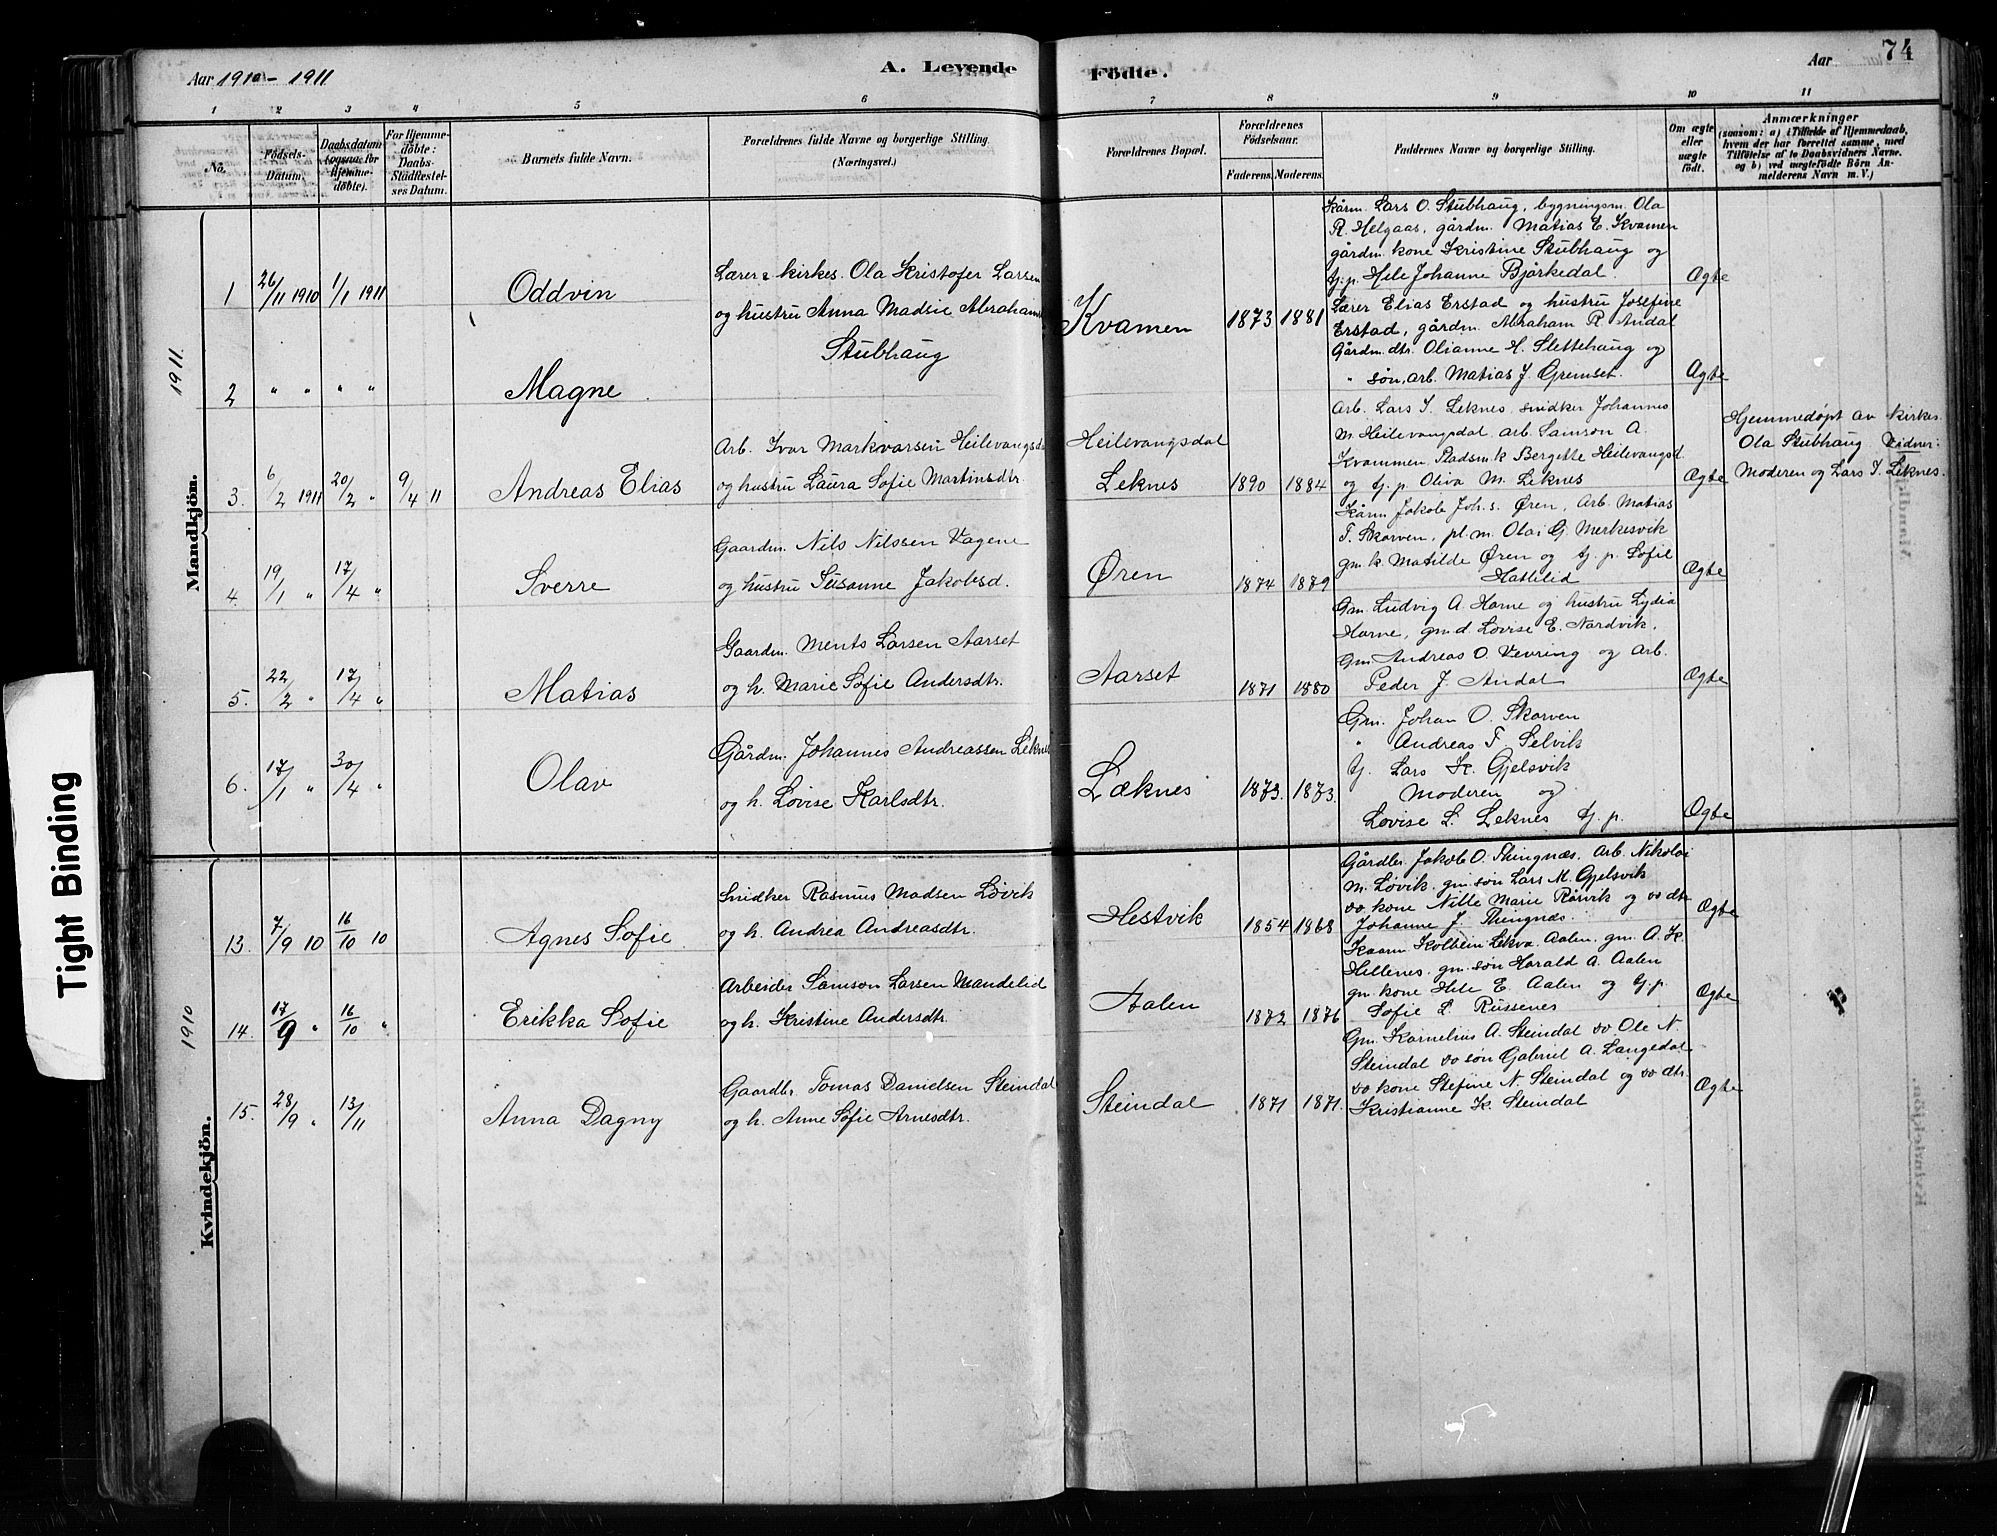 Aar 1910 - 1911
A. Levende
Födte.
Aar
74
1 2 3 4 5 6 7 8 9 10 11
No.
Födsels-Datum.
Daabsdatum (ogsaa for Hjemme-döbte).
For Hjemme-döbte: Daabs-Stadfæstel-ses Datum.
Barnets fulde Navn.
Forældrenes fulde Navne og borgerlige Stilling (Næringsvei.)
Forældrenes Bopæl.
Forældrenes Födselsaar.
Faderens. Moderens.
Faddernes Navne og borgerlige Stilling.
Om ægte eller uægte födt.
Anmærkninger
(saasom: a) i Tilfælde af Hjemmedaab,
hvem der har forrettet samme, med
Tilföielse af to Daabsvidners Navne.
og b) ved uægtefödte Börn An-
melderens Navn m. V.)
1911
Mandkjön.
1 26/11 1910 1/1 1911 Oddvin
Lærer & kirkes. Ola Kristofer Larsen
og hustru Anna Madsie Abrahams
Stubhaug
Kvamen 1873 1881
Kårm. Lars O. Stubhaug, bygningsm. Ola
R. Helgaas, gårdm. Matias E. Kvamen
gårdm. kone Kristine Stubhaug og
tj.p. Hele Johanne Bjørkedal.
Ægte
2 " " " " Magne
Lærer Elias Erstad og hustru Josefine
Erstad, gårdm. Abraham R. Andal
Gårdm. dtr. Olianne H. Slettehaug og
" søn, arb. Matias J. Gremset.
Ægte
3. 6/2 1911 20/2 " 9/4 11 Andreas Elias
Arb. Ivar Markvarsen Heilevangsd.
og hustru Laura Sofie Martinsdtr.
Heilevangsdal
Leknes 1890 1884
Arb. Lars I. Leknes, snidker Johannes
M. Heilevangsdal, arb. Samson A.
Kvammen, Pladsm.k Bergette Heilevangsd.
og tj. p. Oliva M. Leknes
Ægte
Hjemmedøpt av kirkes.
Ola Stubhaug Vidner:
Moderen og Lars I. Leknes.
4. 19/1 " 17/4 " Sverre
Gaardm. Nils Nilssen Vagene
og hustru Susanne Jakobsd.
Øren 1874 1879
Kårm Jakob Joh.s. Øren, Arb. Matias
T. Skorven, pl. m. Olai G. Merkesvik
gm. k. Matilde Øren og tj. p. Sofie
Hatlelid
Ægte
5. 22/2 " 17/4 " Matias
Gaardm. Ments Larsen Aarset
og h. Marie Sofie Andersdtr.
Aarset 1871 1880
Gm Ludvig A. Horne og hustru Lydia
Horne, gm.d. Lovise E. Nordvik,
Gm Andreas O. Vevring og Arb.
Peder J. Andal
Ægte
6. 17/1 " 30/4 " Olav
Gårdm. Johannes Andreassen Leknes
og h. Lovise Karlsdtr.
Leknes 1873. 1873.
Gm. Johan O. Skorven
" Andreas T. Selvik
tj. Lars K. Gjelsvik
Moderen og
Lovise L. Leknes tj. p.
Ægte
1910
Kvindekjön.
13. 7/9 10 16/10 10 Agnes Sofie
Snidker Rasmus Madsen Løvik
og h. Andrea Andreasdtr.
Hestvik 1854 1868
Gårdbr. Jakob O. Thingnæs, Arb. Nikolai
M. Løvik, gm. søn Lars M. Gjelsvik
do kone Nille Marie Rørvik og do dtr.
Johanne J. Thingnæs.
Ægte
14. 17/9 " 16/10 " Erikka Sofie
Arbeider Samson Larsen Mandelid
og h. Kristine Andersdtr.
Aalen 1872 1876
Kaarm Kolbein Lekva, Aalen, gm. A. K.
Hellenes, gm. søn Harald A. Aalen
gm. kone Hele E. Aalen og tj. p.
Sofie L. Russenes
Ægte
15. 28/9 " 13/11 Anna Dagny
Gaardbr. Tomas Danielsen Steindal
og h. Anne Sofie Arnesdtr.
Steindal 1871 1871.
Gm. Kornelius A. Steindal do Ole N.
Steindal do søn Gabriel A. Langedal
do kone Stefine N. Steindal og do dtr.
Kristianne K. Steindal
Ægte
Tight Binding